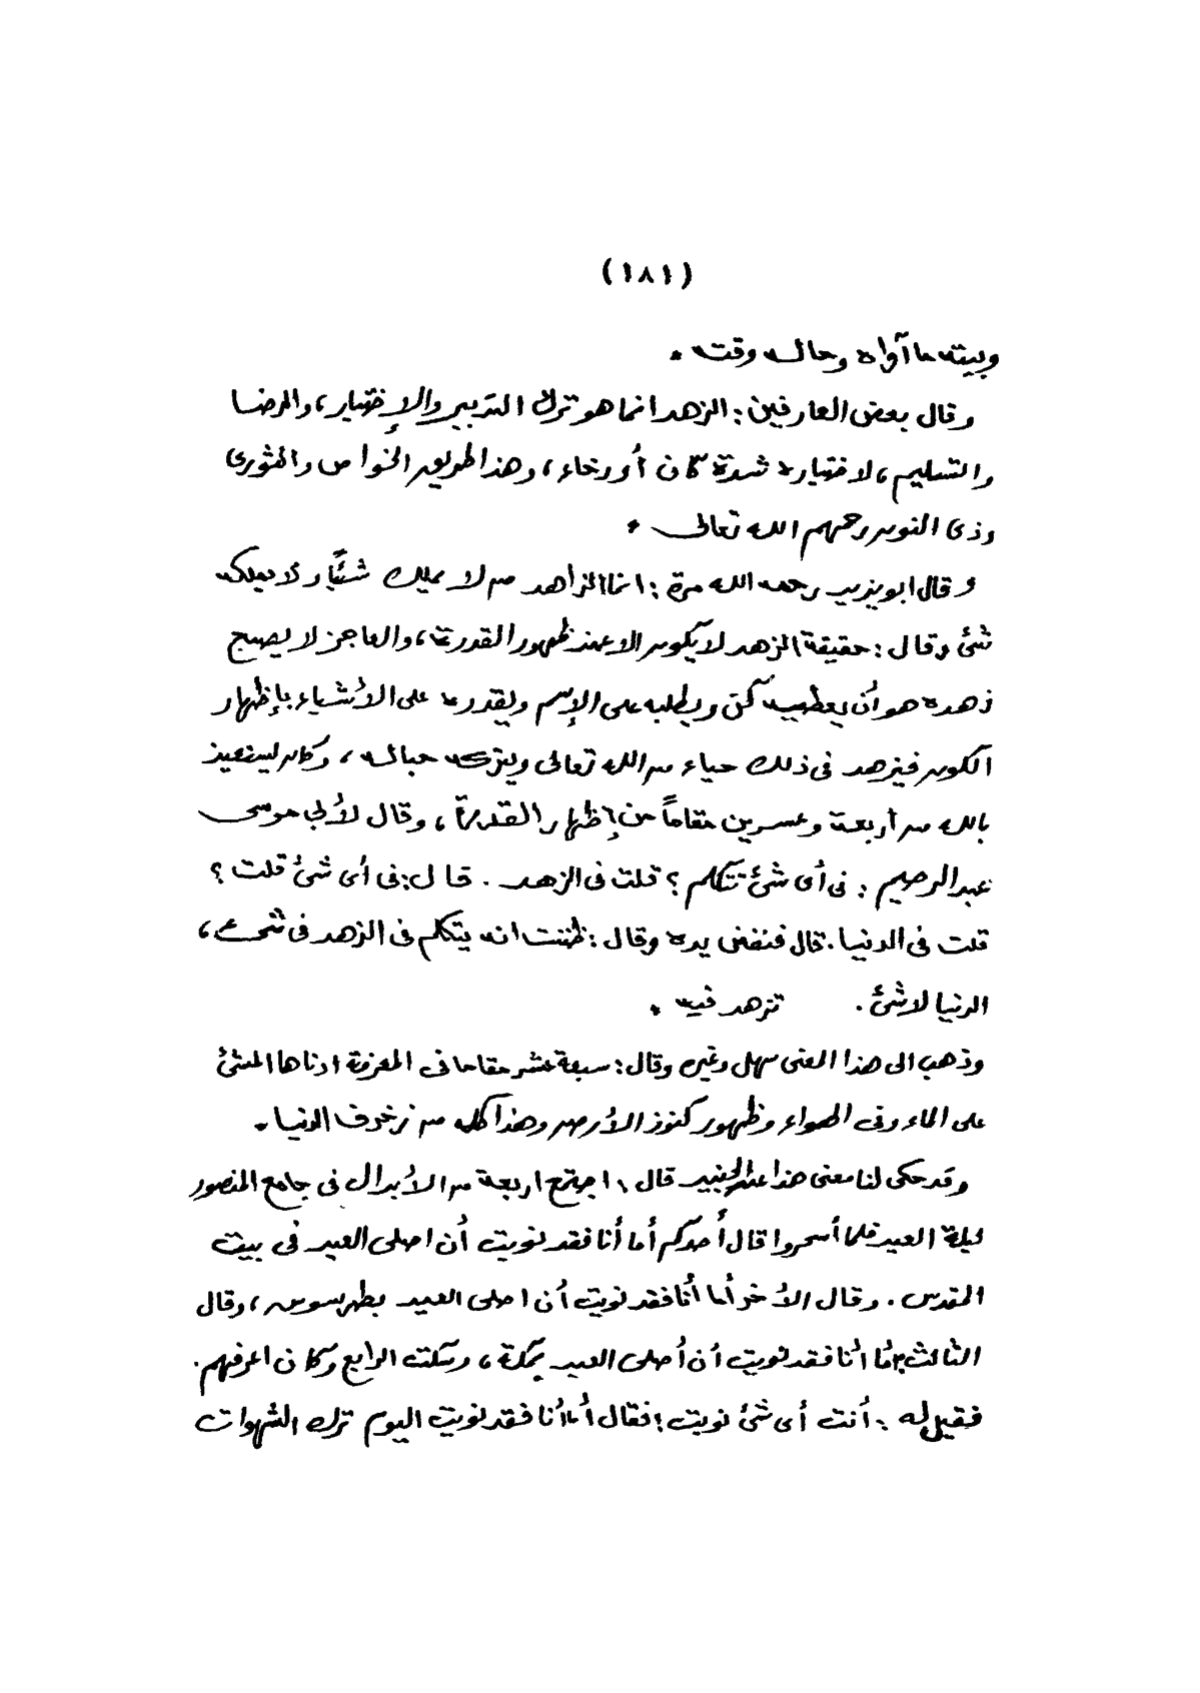 (١٨١)
وبيته ما آواه وحاله وقته .
وقال بعض العارفين : الزهد انما هو ترك التدبير والإختيار ، والرضا
والتسليم ، لاختياره شدة كان أو رخاء ، وهذا طريق الخواص والثورى
وذى النون رحمهم الله تعالى .
وقال ابو يزيد رحمه الله مرة : انما الزاهد من لا يملك شئياً ولا يملكه
شئ وقال : حقيقة الزهد لا يكون الا عند ظهور القدرة ، والعاجز لا يصح
زهده هو أن يعطيه كن ويطلبه على الإسم ويقدره على الأشياء بإظهار
الكون فيزهد فى ذلك حياء من الله تعالى ويتركه حباله ، وكان يستعيذ
بالله من أربعة وعسرين مقاماً من إظهار القدرة ، وقال لأبي موسى
عبد الرحيم : فى أى شئ تتكلم ؟ قلت فى الزهد . قال : فى أى شئ قلت ؟
قلت فى الدنيا . قال فنفض يده وقال : ظننت انه يتكلم فى الزهد فى شئ ،
الدنيا لاشئ . تزهد فيه .
وذهب الى هذا المعنى سهل وغيره وقال : سبعة عشر مقاما فى المعرفة ادناها المشئ
على الماء وفى الهواء وظهور كنوز الأرض وهذا كله من زخرف الدنيا .
وقد حكى لنا معنى هذا عن الجنيد قال : اجتمع اربعة من الأبدال فى جامع المنصور
ليلة العيد فلما أسحروا قال أحدكم أما أنا فقد نويت أن اصلى العيد فى بيت
المقدس . وقال الأخر أما أنا فقد نويت أن اصلى العيد بطرسوس ، وقال
الثالث : أما أنا فقد نويت أن أصلى العيد بمكة ، وسكت الرابع وكان اعرفهم .
فقيل له : أنت أى شئ نويت ؛ فقال أما أنا فقد نويت اليوم ترك الشهوات